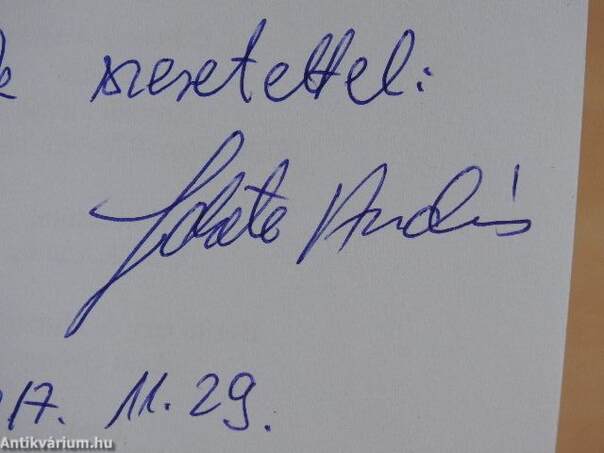 szeretettel:
András
17. 11. 29.
Antikvárium.hu